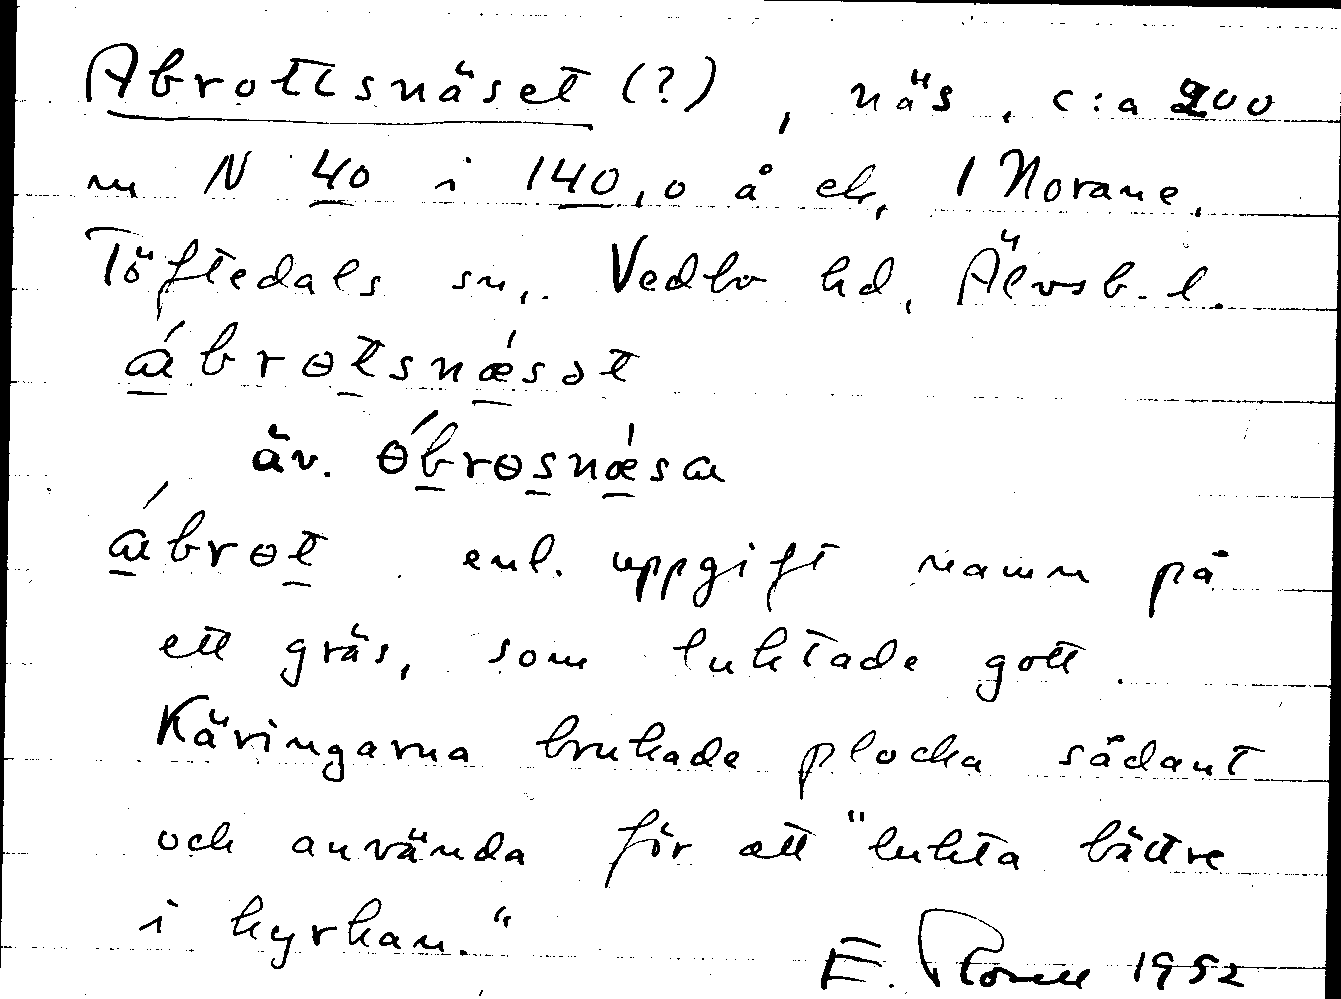 Abrottsnäset (?), näs, c:a 200
m N 40 i 140,0 å ek, 1 Norane,
Töftedals sn, Vedbo hd, Älvsb. l.
ábrɵtsnǽsət
äv. ɵ́brɵsnǽsa
ábrɵt enl. uppgift namn på
ett gräs, som luktade gott.
Käringarna brukade plocka sådant
och använda för att "lukta bättre
i kyrkan."
E. 1952